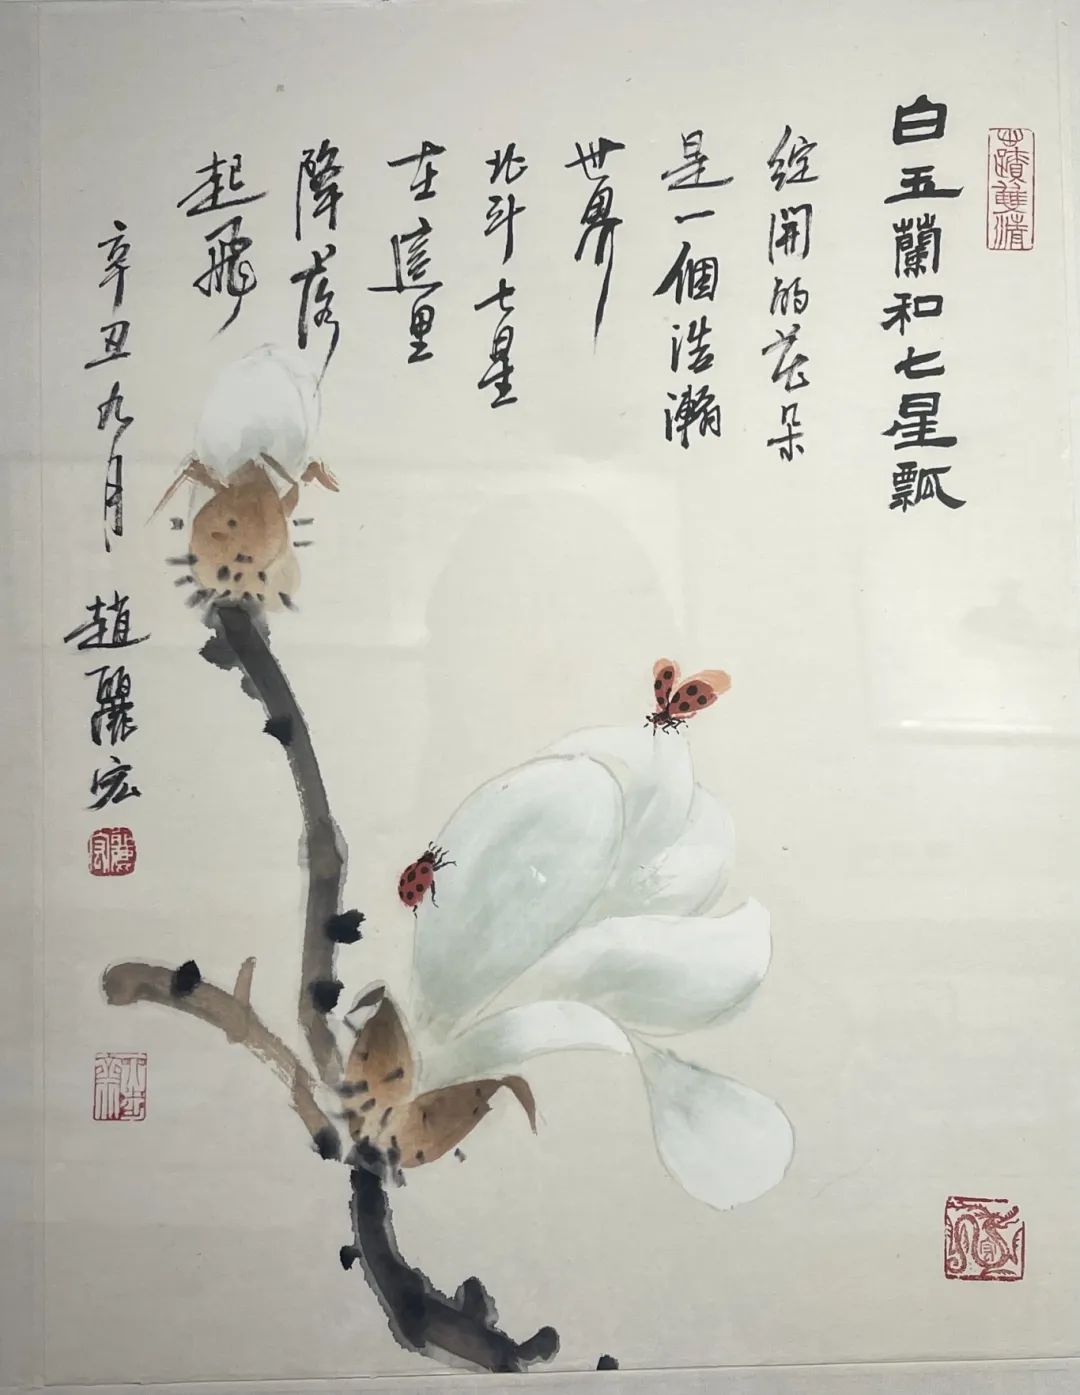 白玉蘭和七星瓢
綻開的花朵
是一個浩瀚
世界
北斗七星
在這里
降落
起飛
辛丑九月
趙麗宏